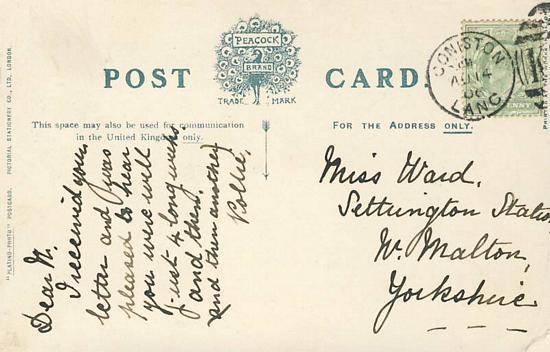 POST CARD.
PEACOCK
BRAND
TRADE MARK
This space may also be used for communication
in the United Kingdom only.
FOR THE ADDRESS ONLY.
CONISTON
LANC
Dear N.
I received your
letter and I was
pleased to hear
you were well
just 4 long weeks
and then.
and then another
Pollie.
Miss Ward,
Settrington Station
Nr. Malton,
Yorkshire
"PLATINO-PHOTO" POSTCARD. PICTORIAL STATIONERY CO., LTD., LONDON.